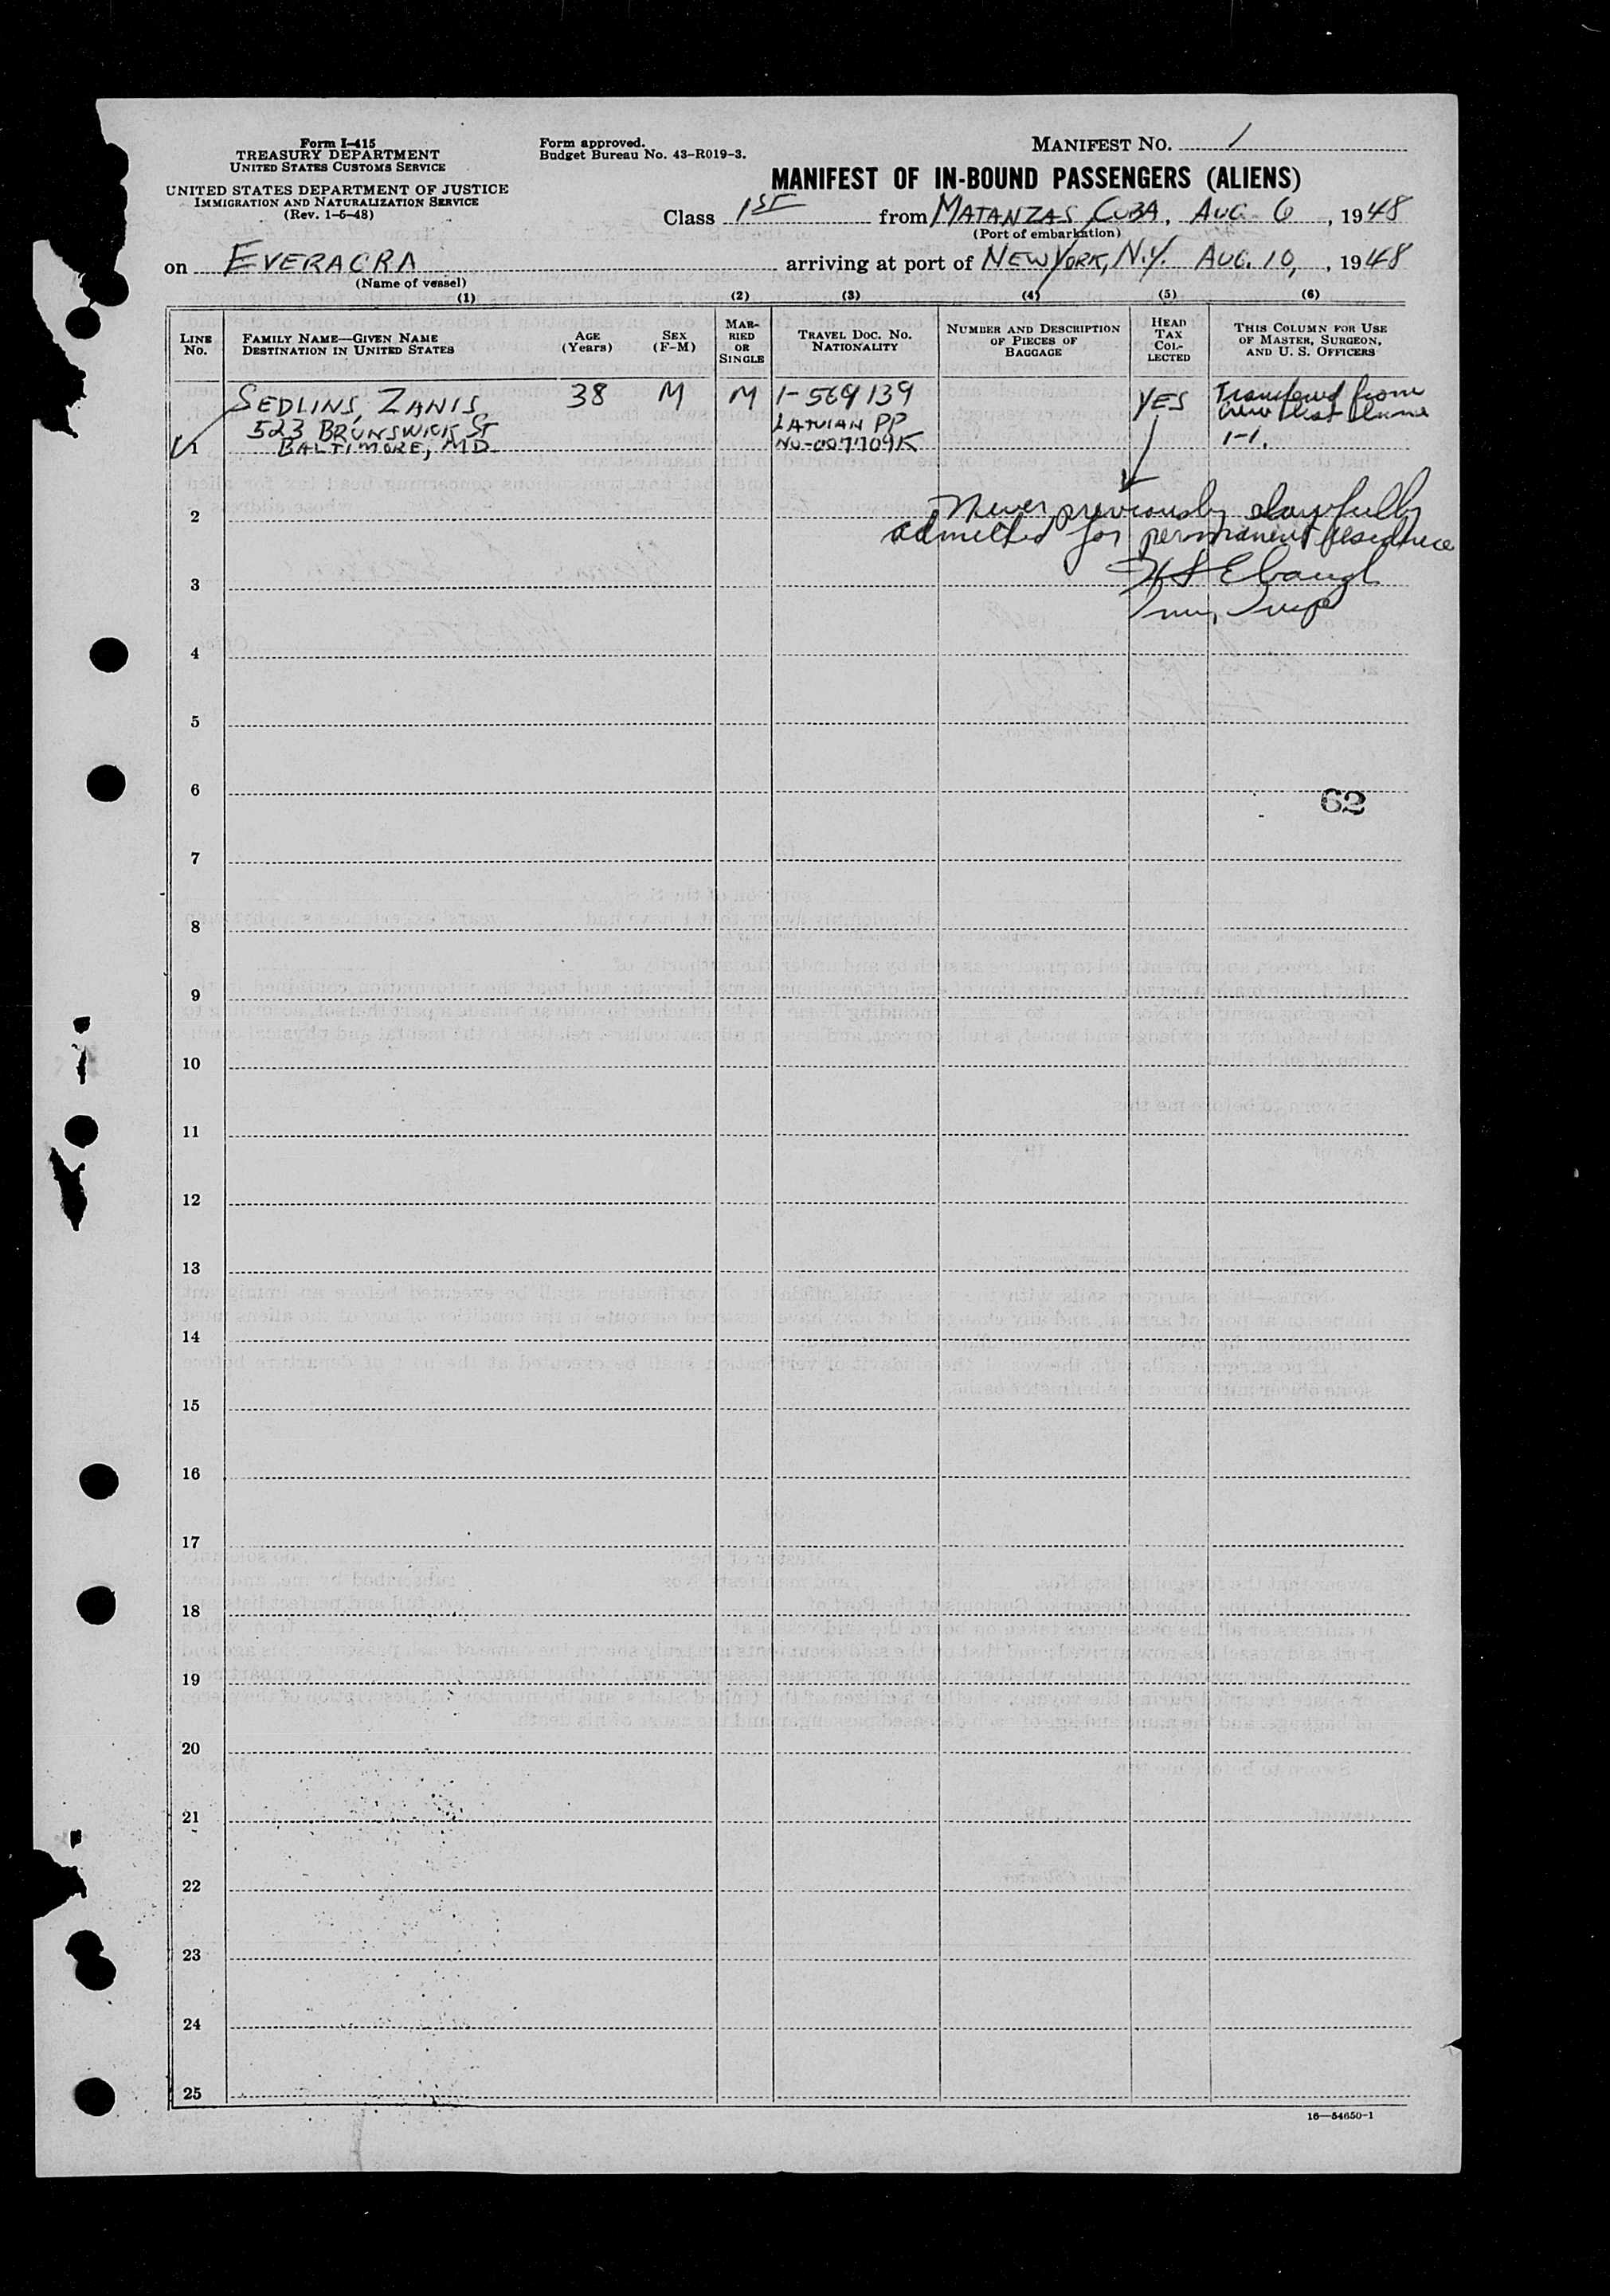 Form I-415
TREASURY DEPARTMENT
UNITED STATES CUSTOMS SERVICE
UNITED STATES DEPARTMENT OF JUSTICE
IMMIGRATION AND NATURALIZATION SERVICE
(Rev. 1-5-48)
Form approved.
Budget Bureau No. 43-R019-3.
MANIFEST No. 1
MANIFEST OF IN-BOUND PASSENGERS (ALIENS)
Class 1ST from MATANZAS, CUBA, AUG 6, 1948
(Port of embarkation)
on EVERACRA arriving at port of NEW YORK, N.Y. AUG. 10, , 1948
(Name of vessel)
(1) (2) (3) (4) (5) (6)
LINE No.
FAMILY NAME—GIVEN NAME
DESTINATION IN UNITED STATES
AGE (Years)
SEX (F-M)
MARRIED OR SINGLE
TRAVEL DOC. NO.
NATIONALITY
NUMBER AND DESCRIPTION OF PIECES OF BAGGAGE
HEAD TAX COLLECTED
THIS COLUMN FOR USE OF MASTER, SURGEON, AND U. S. OFFICERS
1 SEDLINS, ZANIS 38 M M 1-569139 YES Transfered from
523 BRUNSWICK ST LATVIAN PP crew list
BALTIMORE, MD. NO-007709K 1-1.
2 Never previously lawfully
admitted for permanent residence
3 Ebaugh
Imm. Insp
4
5
6
62
7
8
9
10
11
12
13
14
15
16
17
18
19
20
21
22
23
24
25
16—54650-1